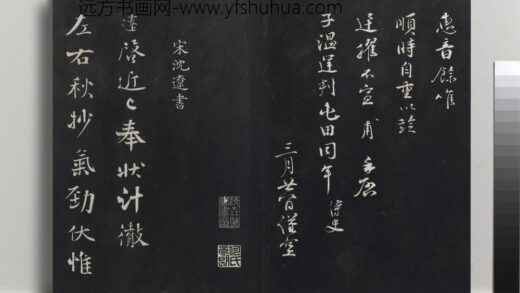 远方书画网-www.yfshuhua.com
惠音餘惟
順時自重以
遷擢不宣 甫 手啓
子溫運判屯田同年 侍史
三月廿日謹空
宋沈遼書
遼啓近々奉狀計徹
左右秋抄氣勁伏惟